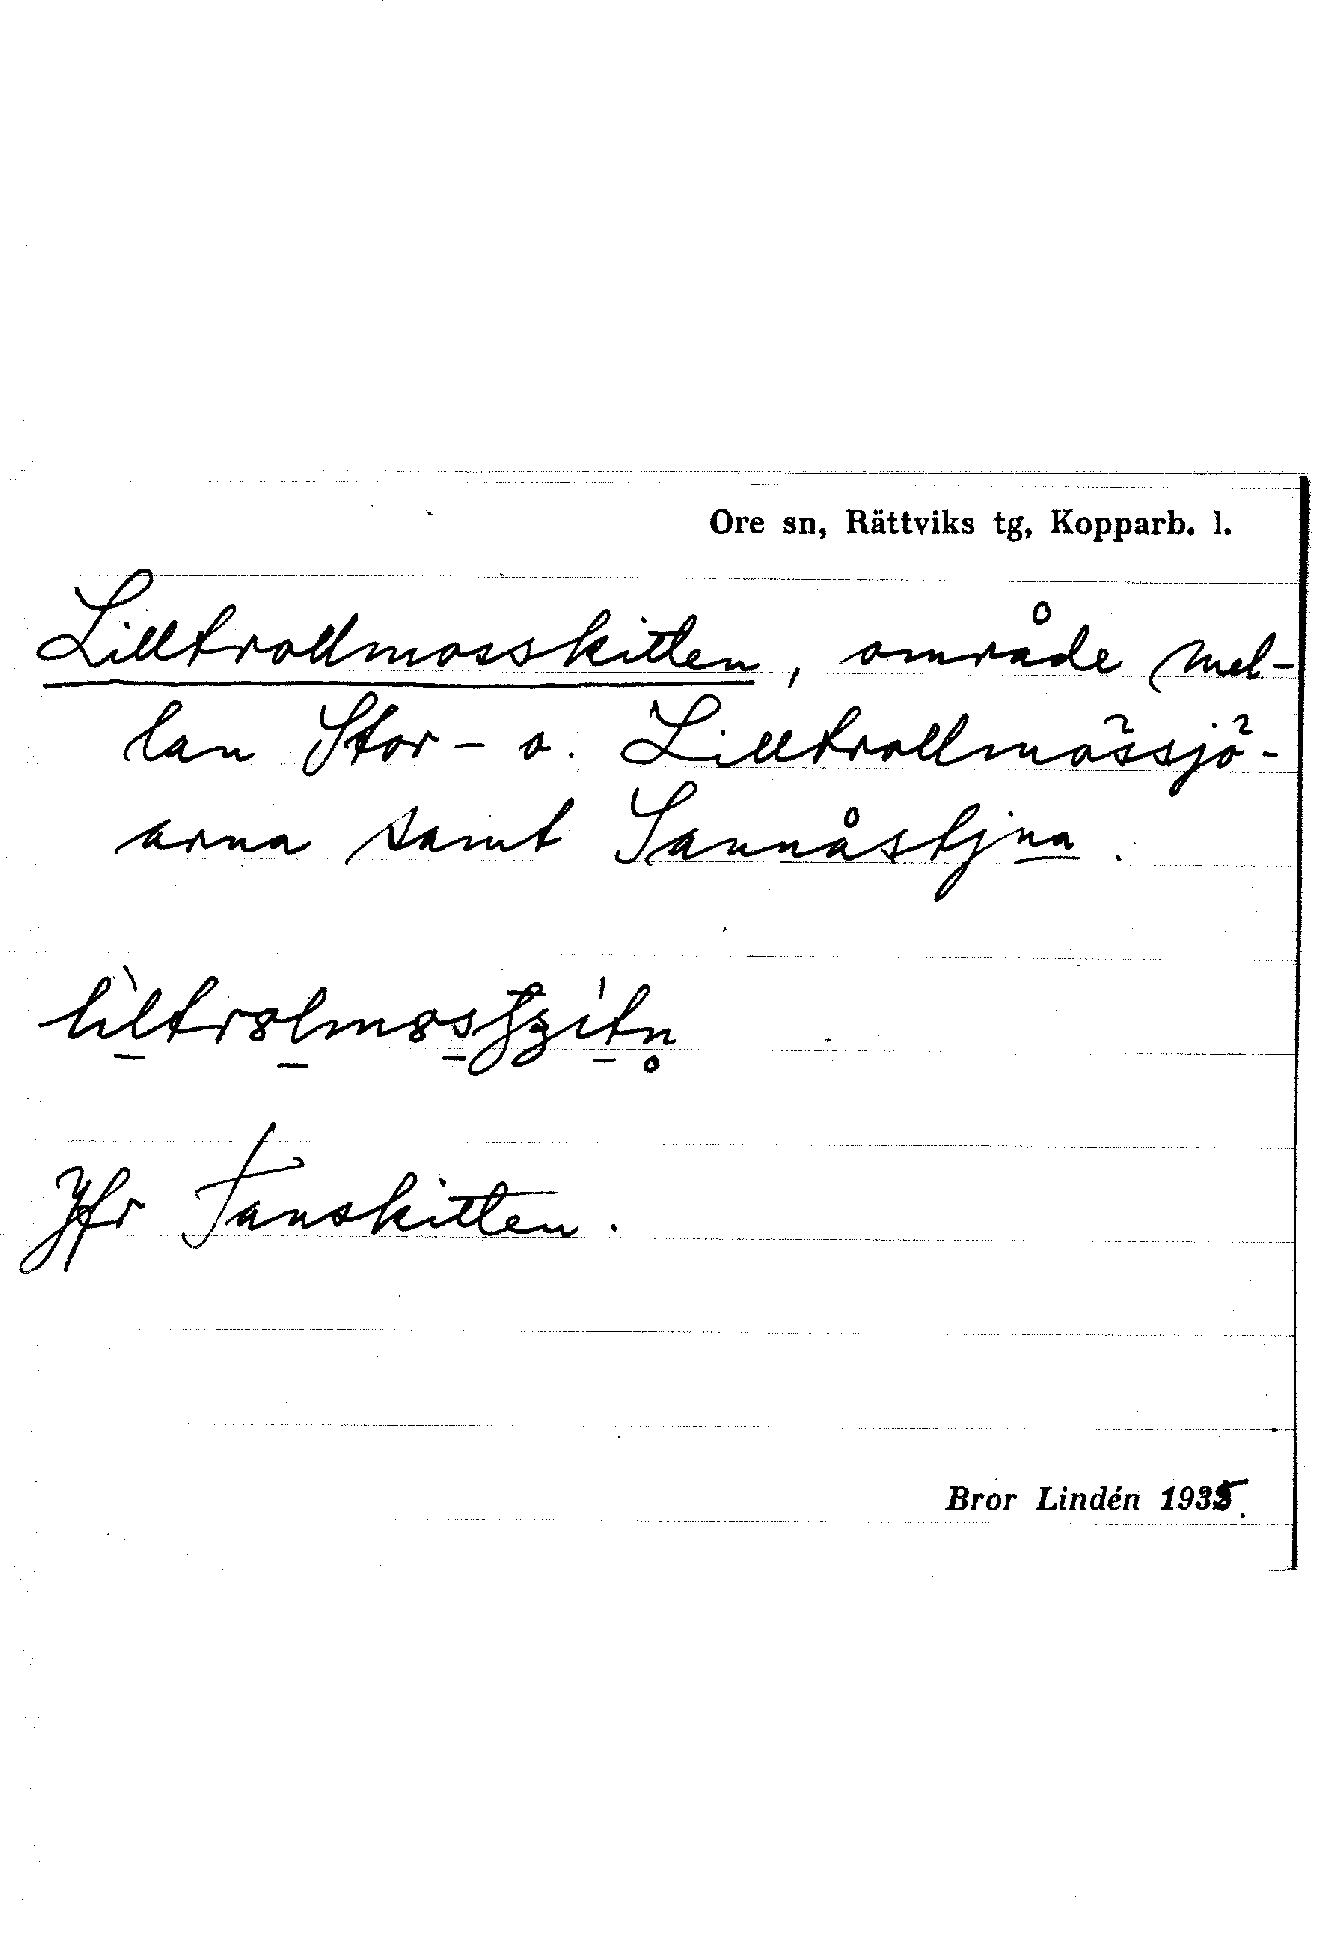 Ore sn, Rättviks tg, Kopparb. l.
Lilltrollmosskitten, område mel-
lan Stor- o. Lilltrollmössjö-
arna samt Sannåstjna.
Jfr Tanskitten.
Bror Lindén 1935.